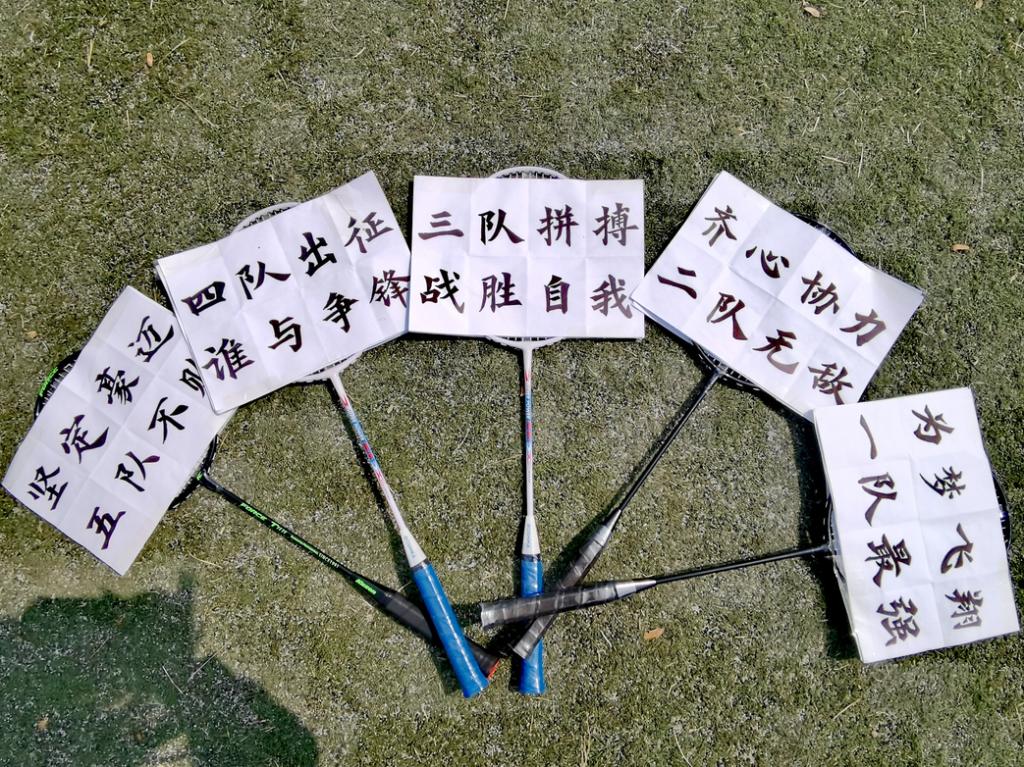 坚定豪迈
五队不
四队出征
谁与争锋
三队拼搏
战胜自我
齐心协力
二队无敌
为梦飞翔
一队最强